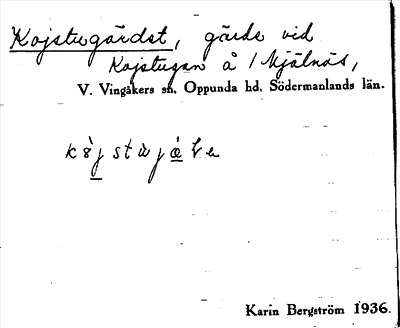 Kojstugärdet, gärde vid
Kojstugan å Mjälnäs,
V. Vingåkers sn. Oppunda hd. Södermanlands län.
Karin Bergström 1936.